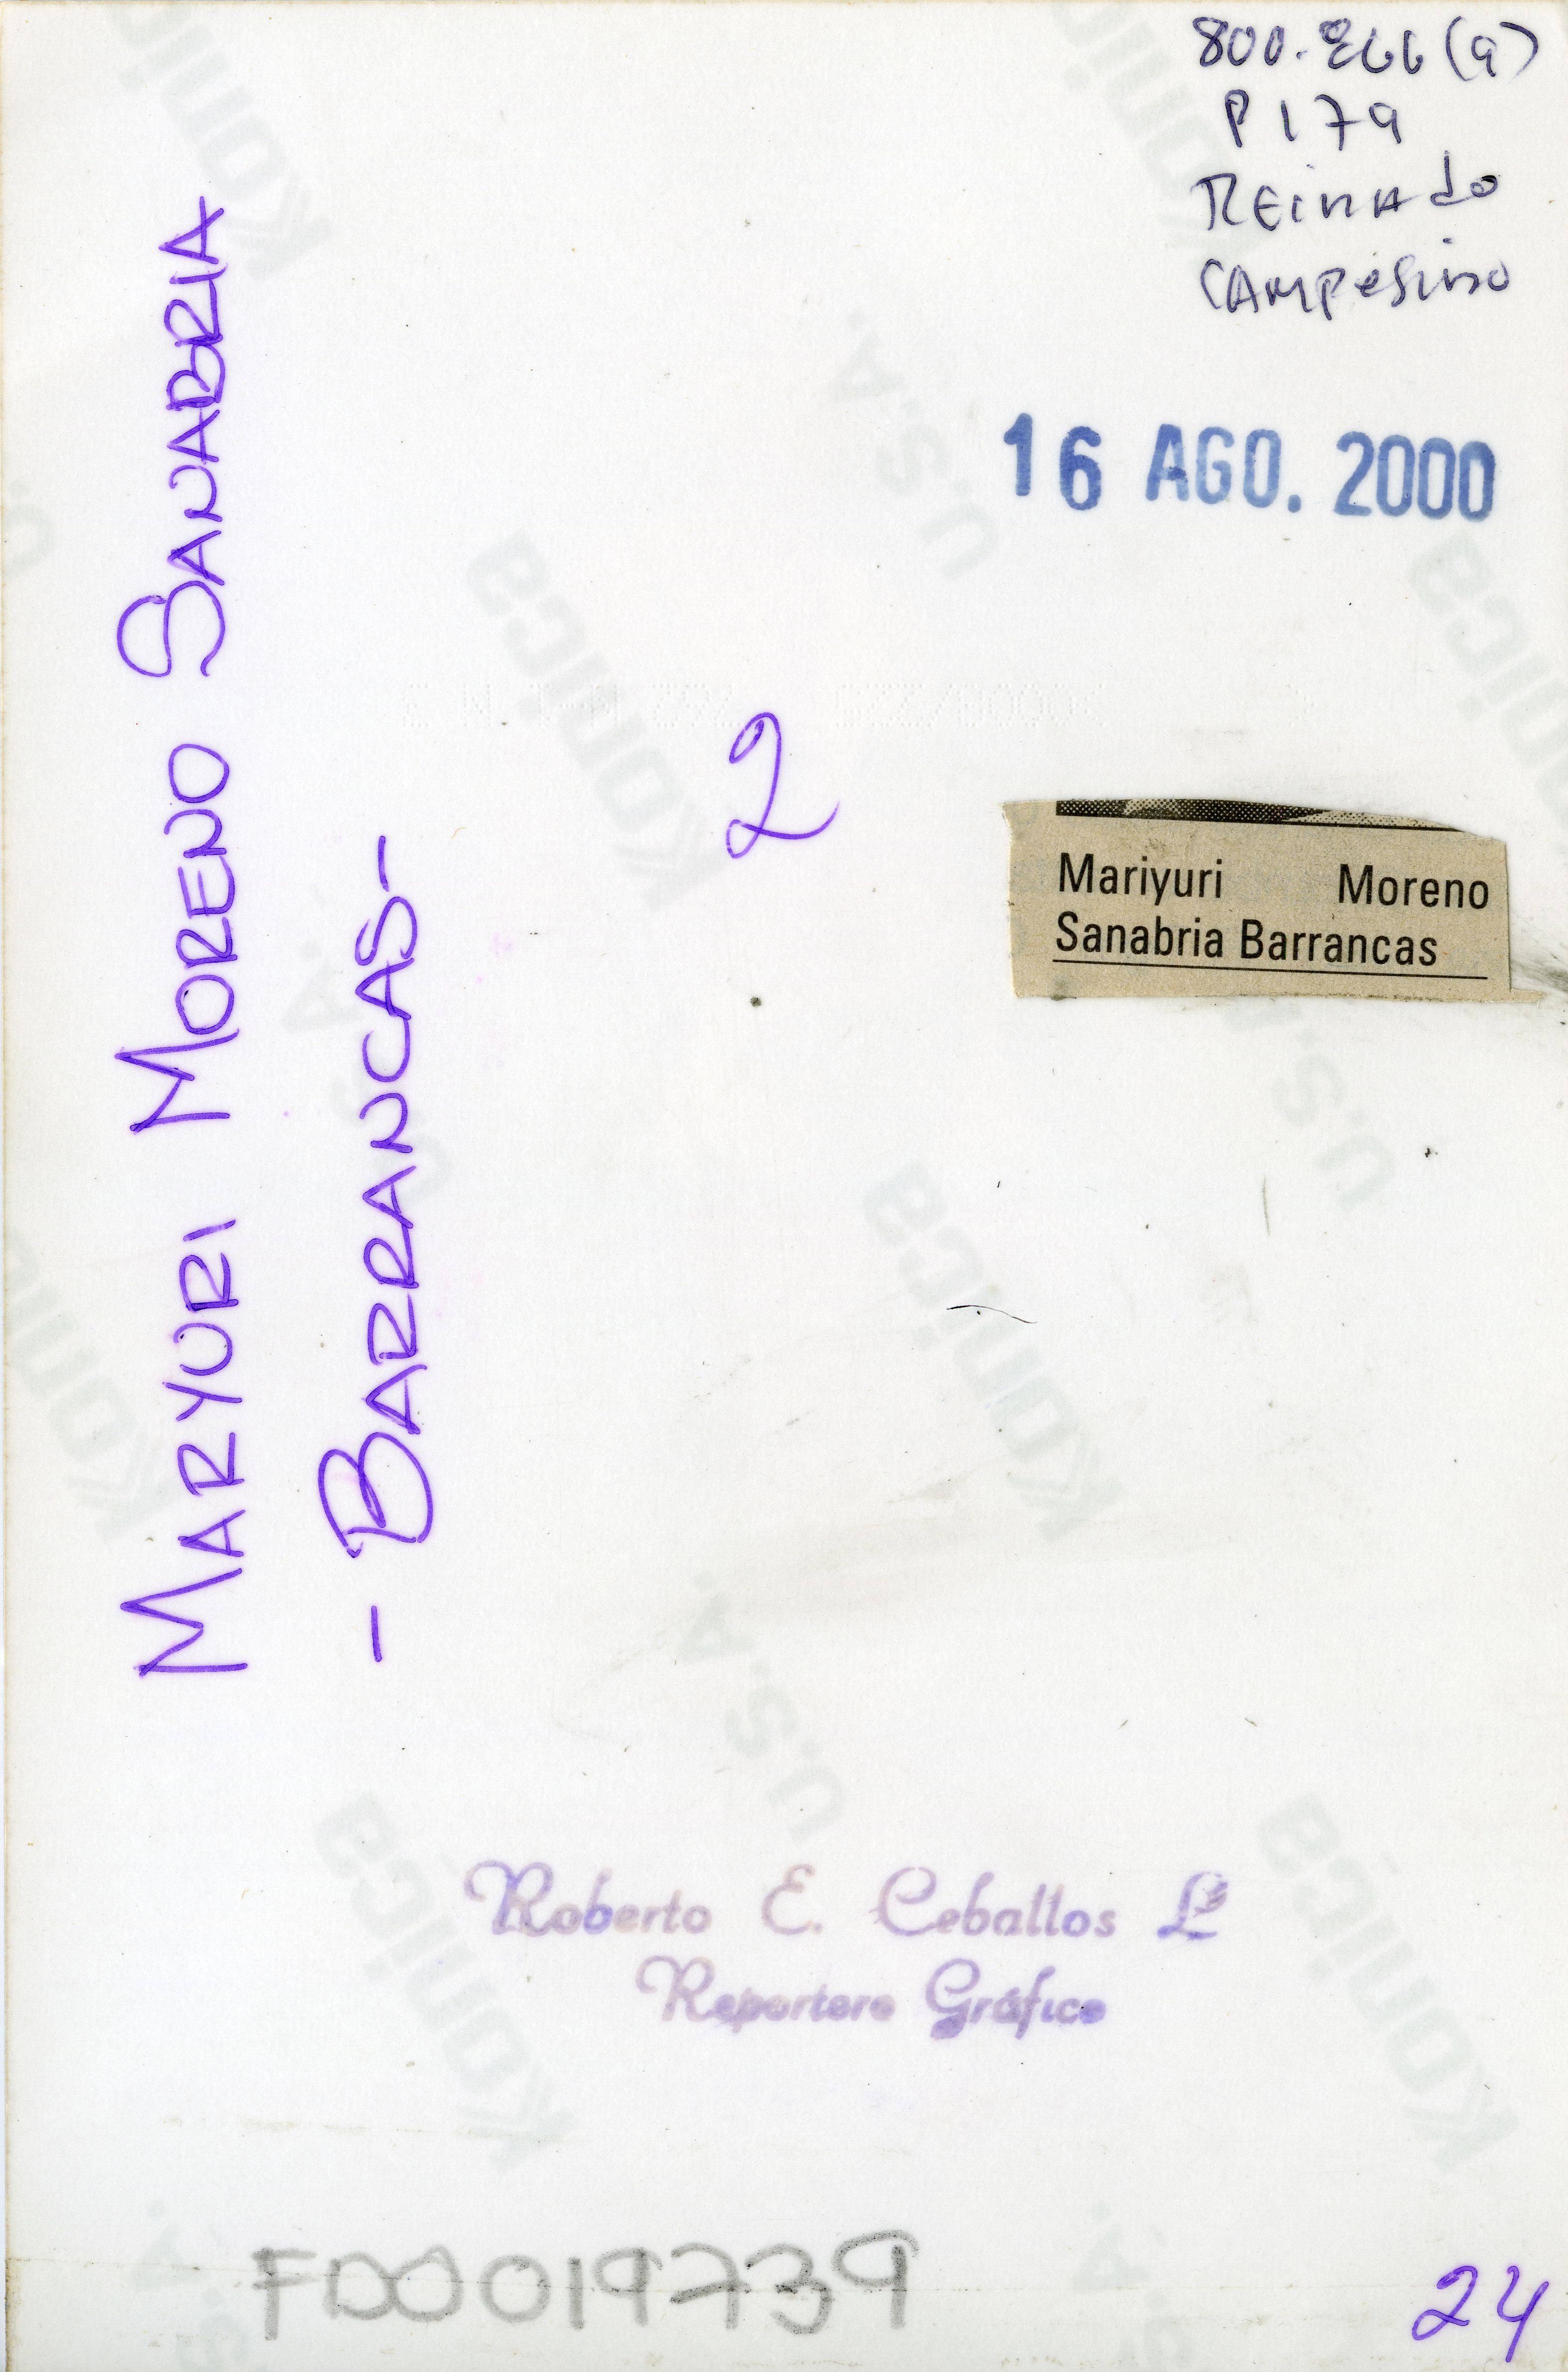 800.266(9)
P179
REINAdo
CAMPESINO
16 AGO. 2000
MARYURI MORENO SANABRIA
- BARRANCAS -
2
Mariyuri Moreno
Sanabria Barrancas
Roberto E. Ceballos L.
Reportero Gráfico
FD0019739
24
Konica
U.S.A.